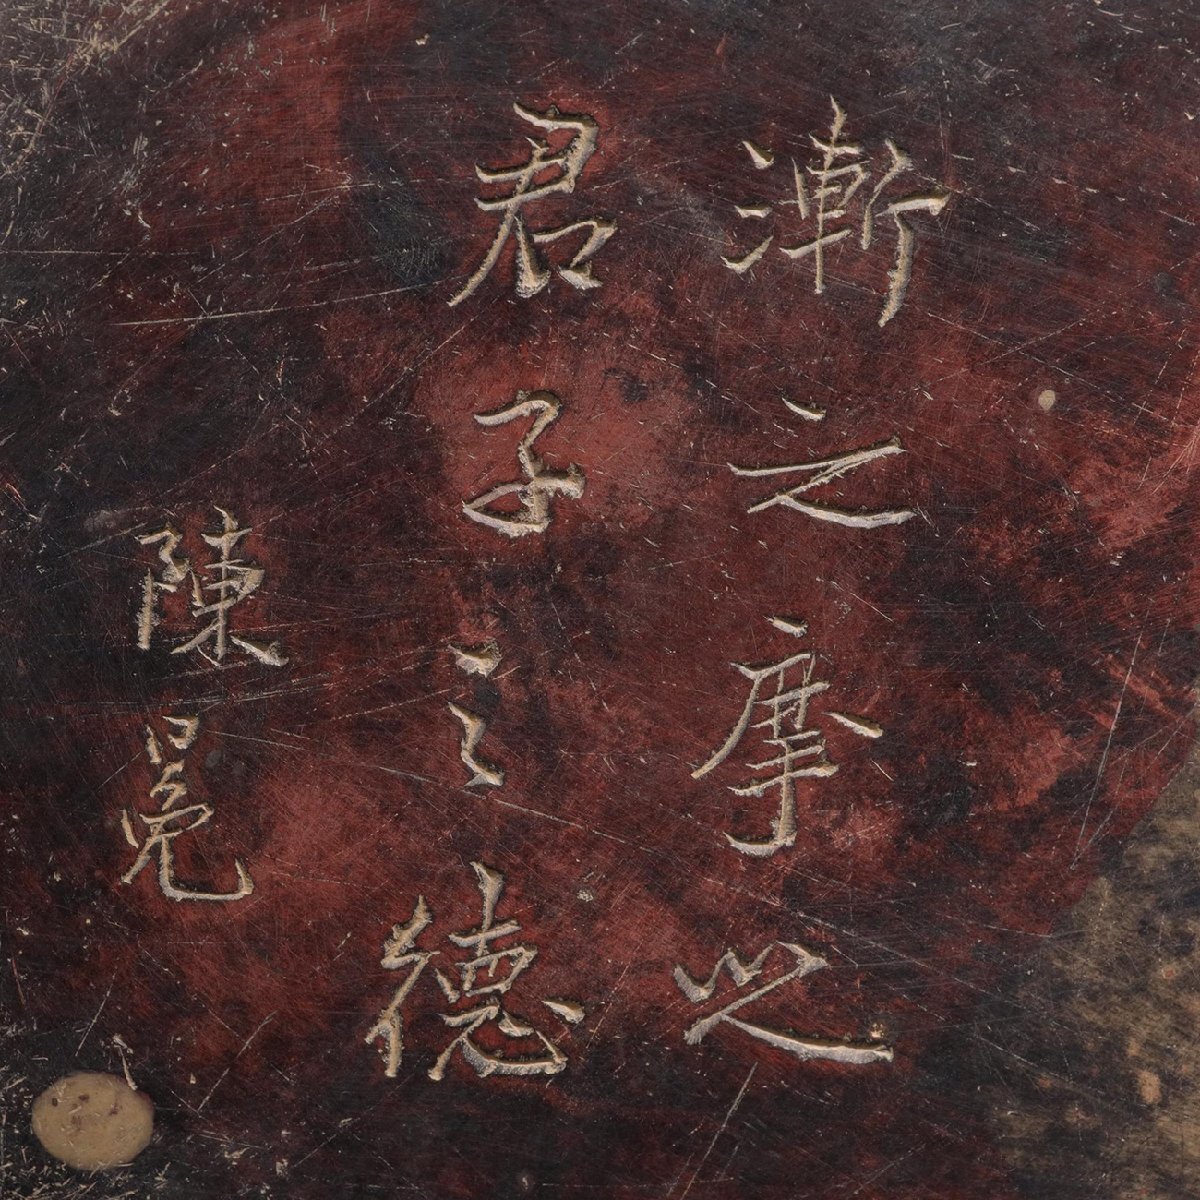 漸之摩之
君子之德
陳冕